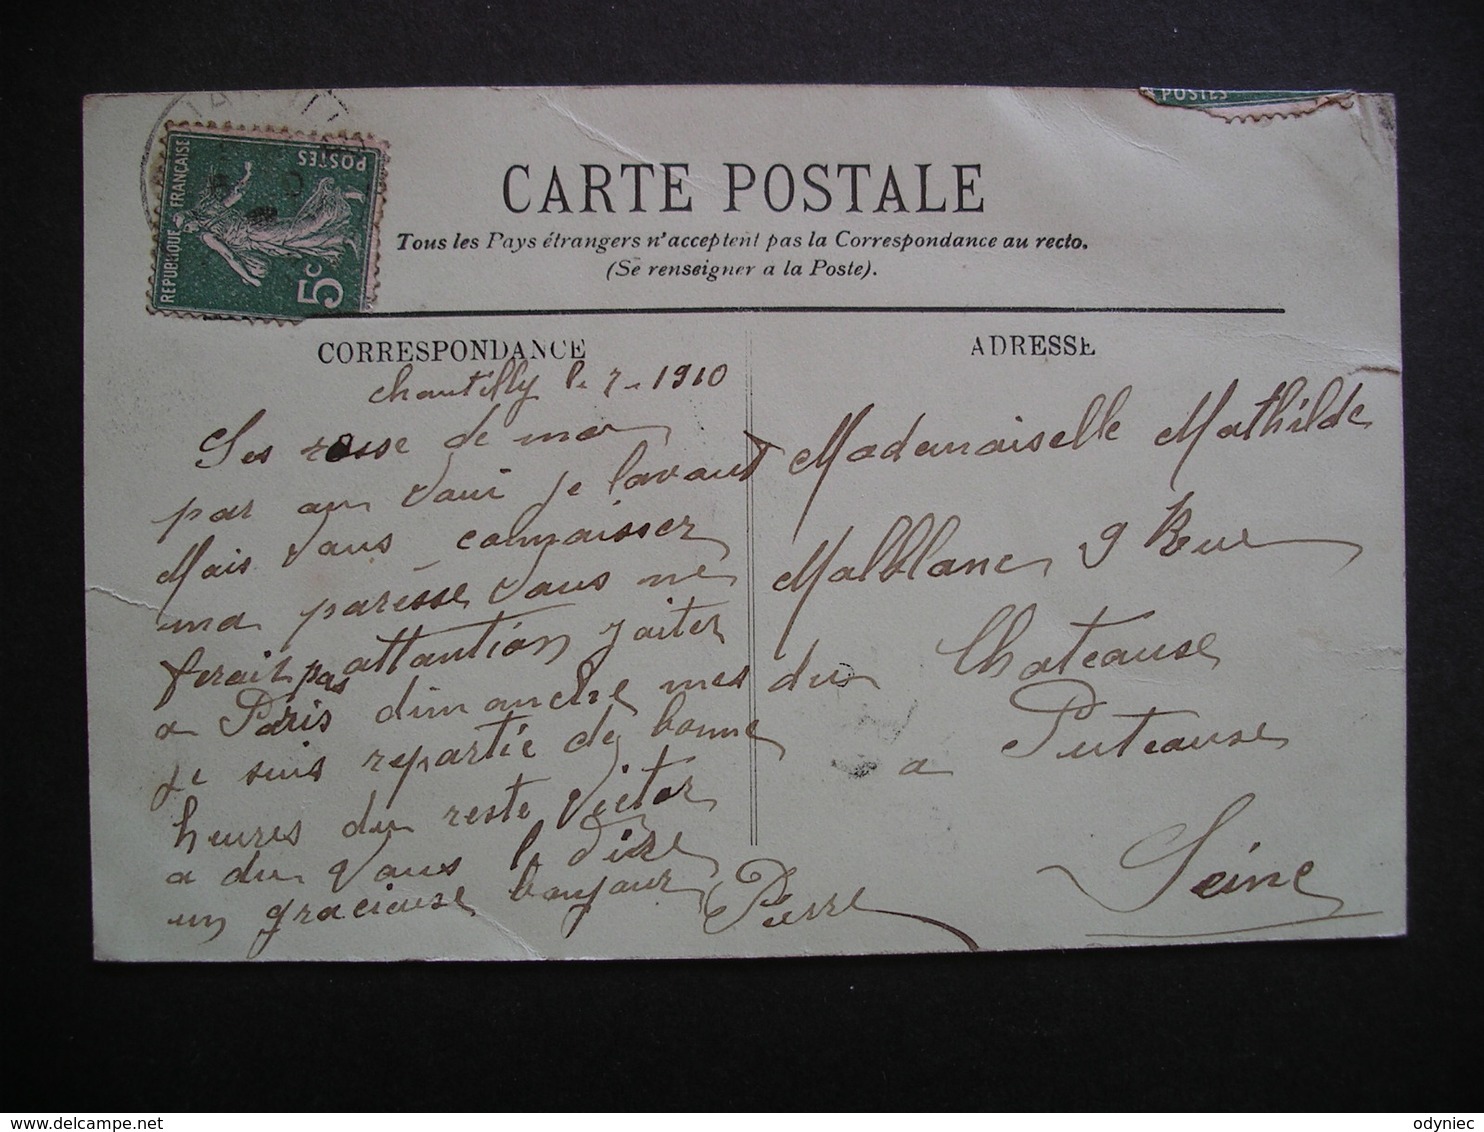 POSTES
RÉPUBLIQUE FRANÇAISE
POSTES
5c
CARTE POSTALE
Tous les Pays étrangers n'acceptent pas la Correspondance au recto.
(Se renseigner a la Poste).
CORRESPONDANCE
chantilly le 7 - 1910
de
par je
Mais vous connaisser
ma parèsse vous ne
ferait pas attantion jaiter
a Paris dimanche mes
je suis repartie de bonne
heures du reste Victor
a du vous le dire
un gracieuse bonjour
Pierre
ADRESSE
Mademoiselle Mathilde
Malblanc 9 Rue
du Chateause
a Puteause
Seine
odyniec